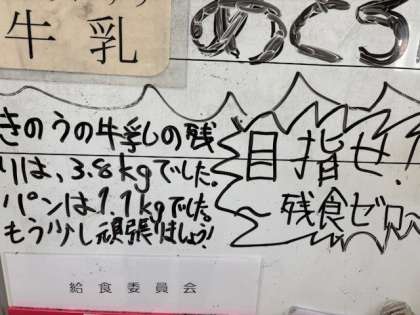 牛乳
のくろ
きのうの牛乳の残
りは、3.8kgでした。
パンは1.1kgでした。
もう少し頑張りましょう!
目指せ!
～残食ゼロへ
給食委員会